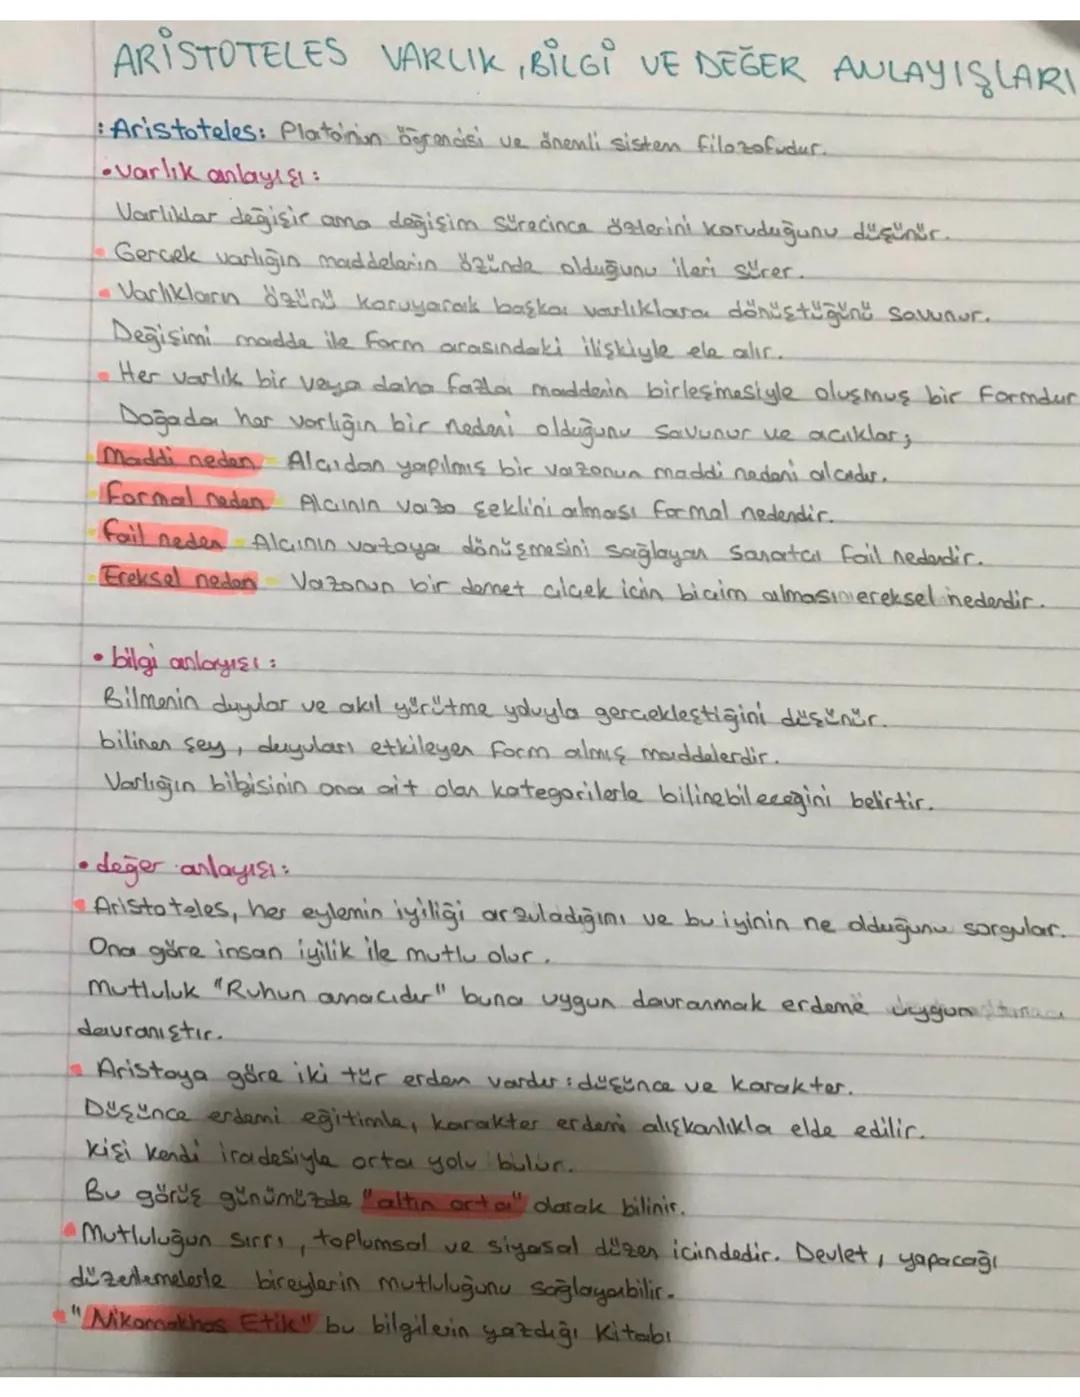 ARİSTOTELES VARLIK, BİLGİ VE DEĞER ANLAYIŞLARI
: Aristoteles: Platon'nun öğrencisi ve önemli sistem filozofudur.
• varlık anlayışı:
Varlıklar değişir ama değişim sürecince özlerini koruduğunu düşünür.
Gerçek varlığın maddelerin özünde olduğunu ileri sürer.
Varlıkların özünü koruyarak başka varlıklara dönüştüğünü savunur.
Değişimi madde ile form arasındaki ilişkiyle ele alır.
Her varlık bir veya daha fazla maddenin birleşmesiyle oluşmuş bir Formdur
Doğada her varlığın bir nedeni olduğunu savunur ve açıklar;
Maddi neden Alçıdan yapılmış bir vazonun maddi nedeni alçıdır.
Formal neden Alçının vazo şeklini alması formal nedendir.
Fail neden Alçının vazoya dönüşmesini sağlayan sanatçı fail nedendir.
Ereksel neden Vazonun bir demet çiçek için biçim alması ereksel nedendir.
• bilgi anlayışı:
Bilmenin duyular ve akıl yürütme yoluyla gerçekleştiğini düşünür.
bilinen şey, duyuları etkileyen form almış maddelerdir.
Varlığın bilgisinin ona ait olan kategorilerle bilinebileceğini belirtir.
• değer anlayışı:
Aristoteles, her eylemin iyiliği arzuladığını ve bu iyinin ne olduğunu sorgular.
Ona göre insan iyilik ile mutlu olur.
Mutluluk "Ruhun amacıdır" buna uygun davranmak erdeme uygun
davranıştır.
Aristoya göre iki tür erdem vardır: düşünce ve karakter.
Düşünce erdemi eğitimle, karakter erdemi alışkanlıkla elde edilir.
Kişi kendi iradesiyle orta yolu bulur.
Bu görüş günümüzde "altın orta" olarak bilinir.
Mutluluğun sırrı, toplumsal ve siyasal düzen içindedir. Devlet, yapacağı
düzenlemelerle bireylerin mutluluğunu sağlayabilir.
"Nikomakhos Etik" bu bilgilerin yazdığı Kitabı